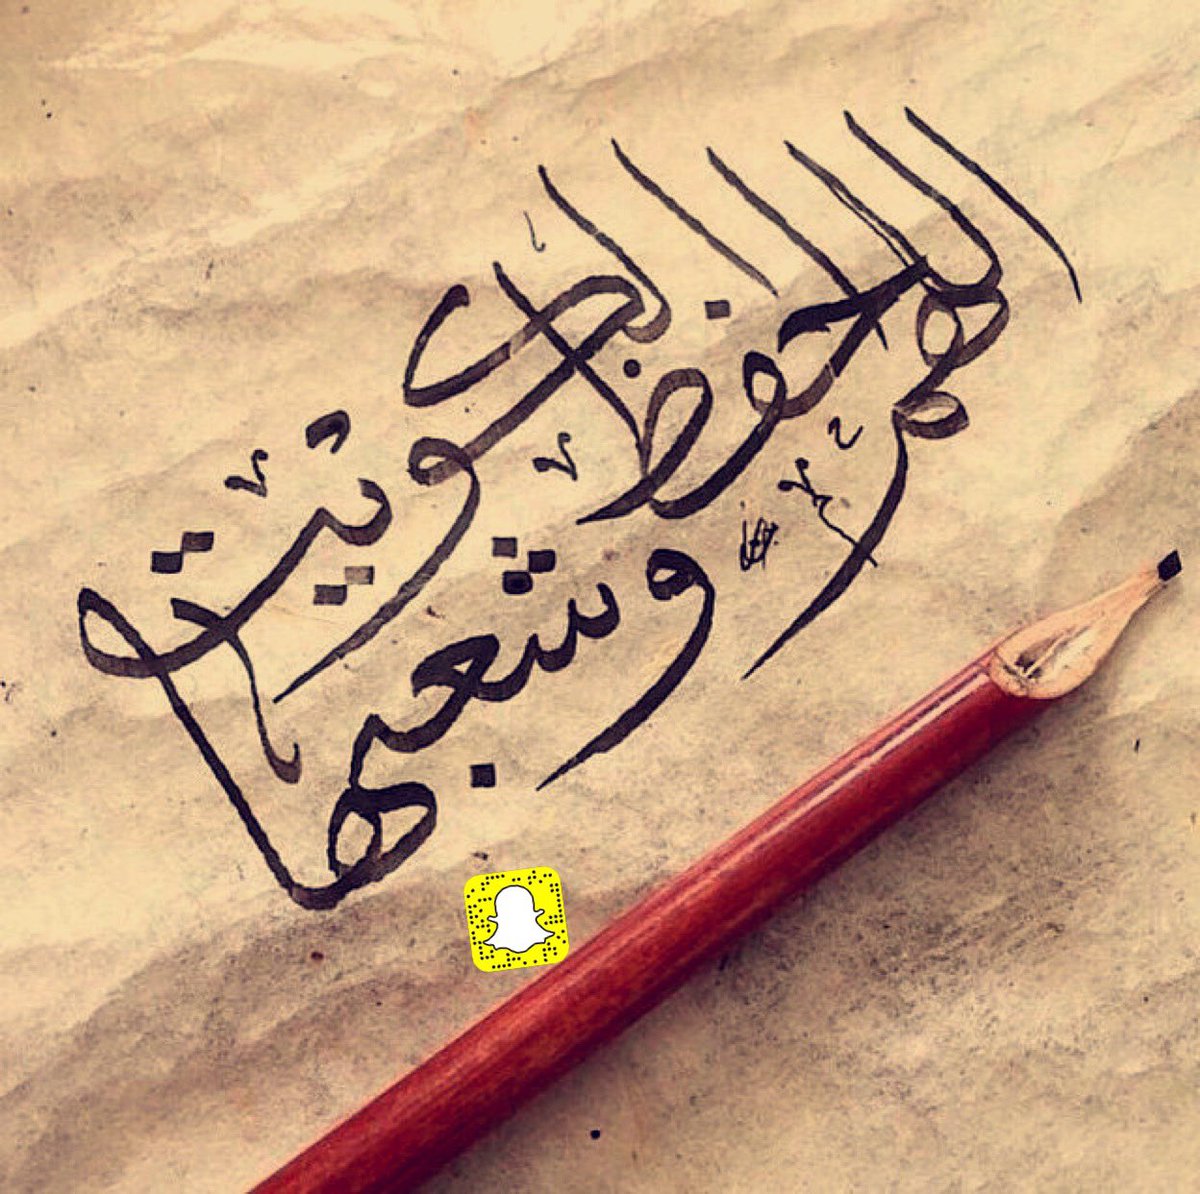 اللهم احفظ الكويت
وشعبها